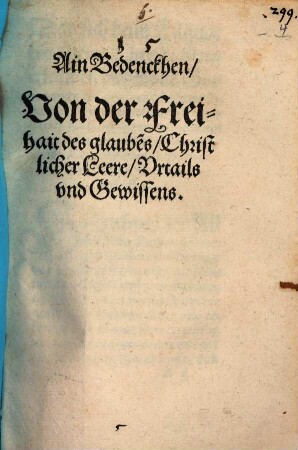 6.
299.
4
5
Ain Bedenckhen/
Von der Frei-
hait des glaubēs/Christ
licher Leere/Vrtails
vnd Gewissens.
5